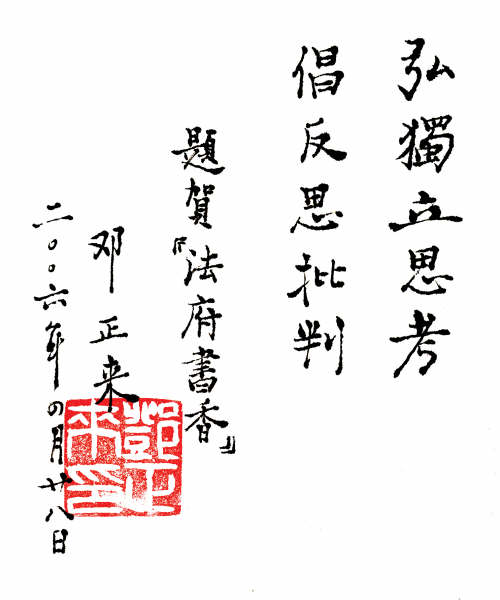 弘獨立思考
倡反思批判
題賀『法府書香』
邓正来
二〇〇六年四月廿八日
鄧正来印